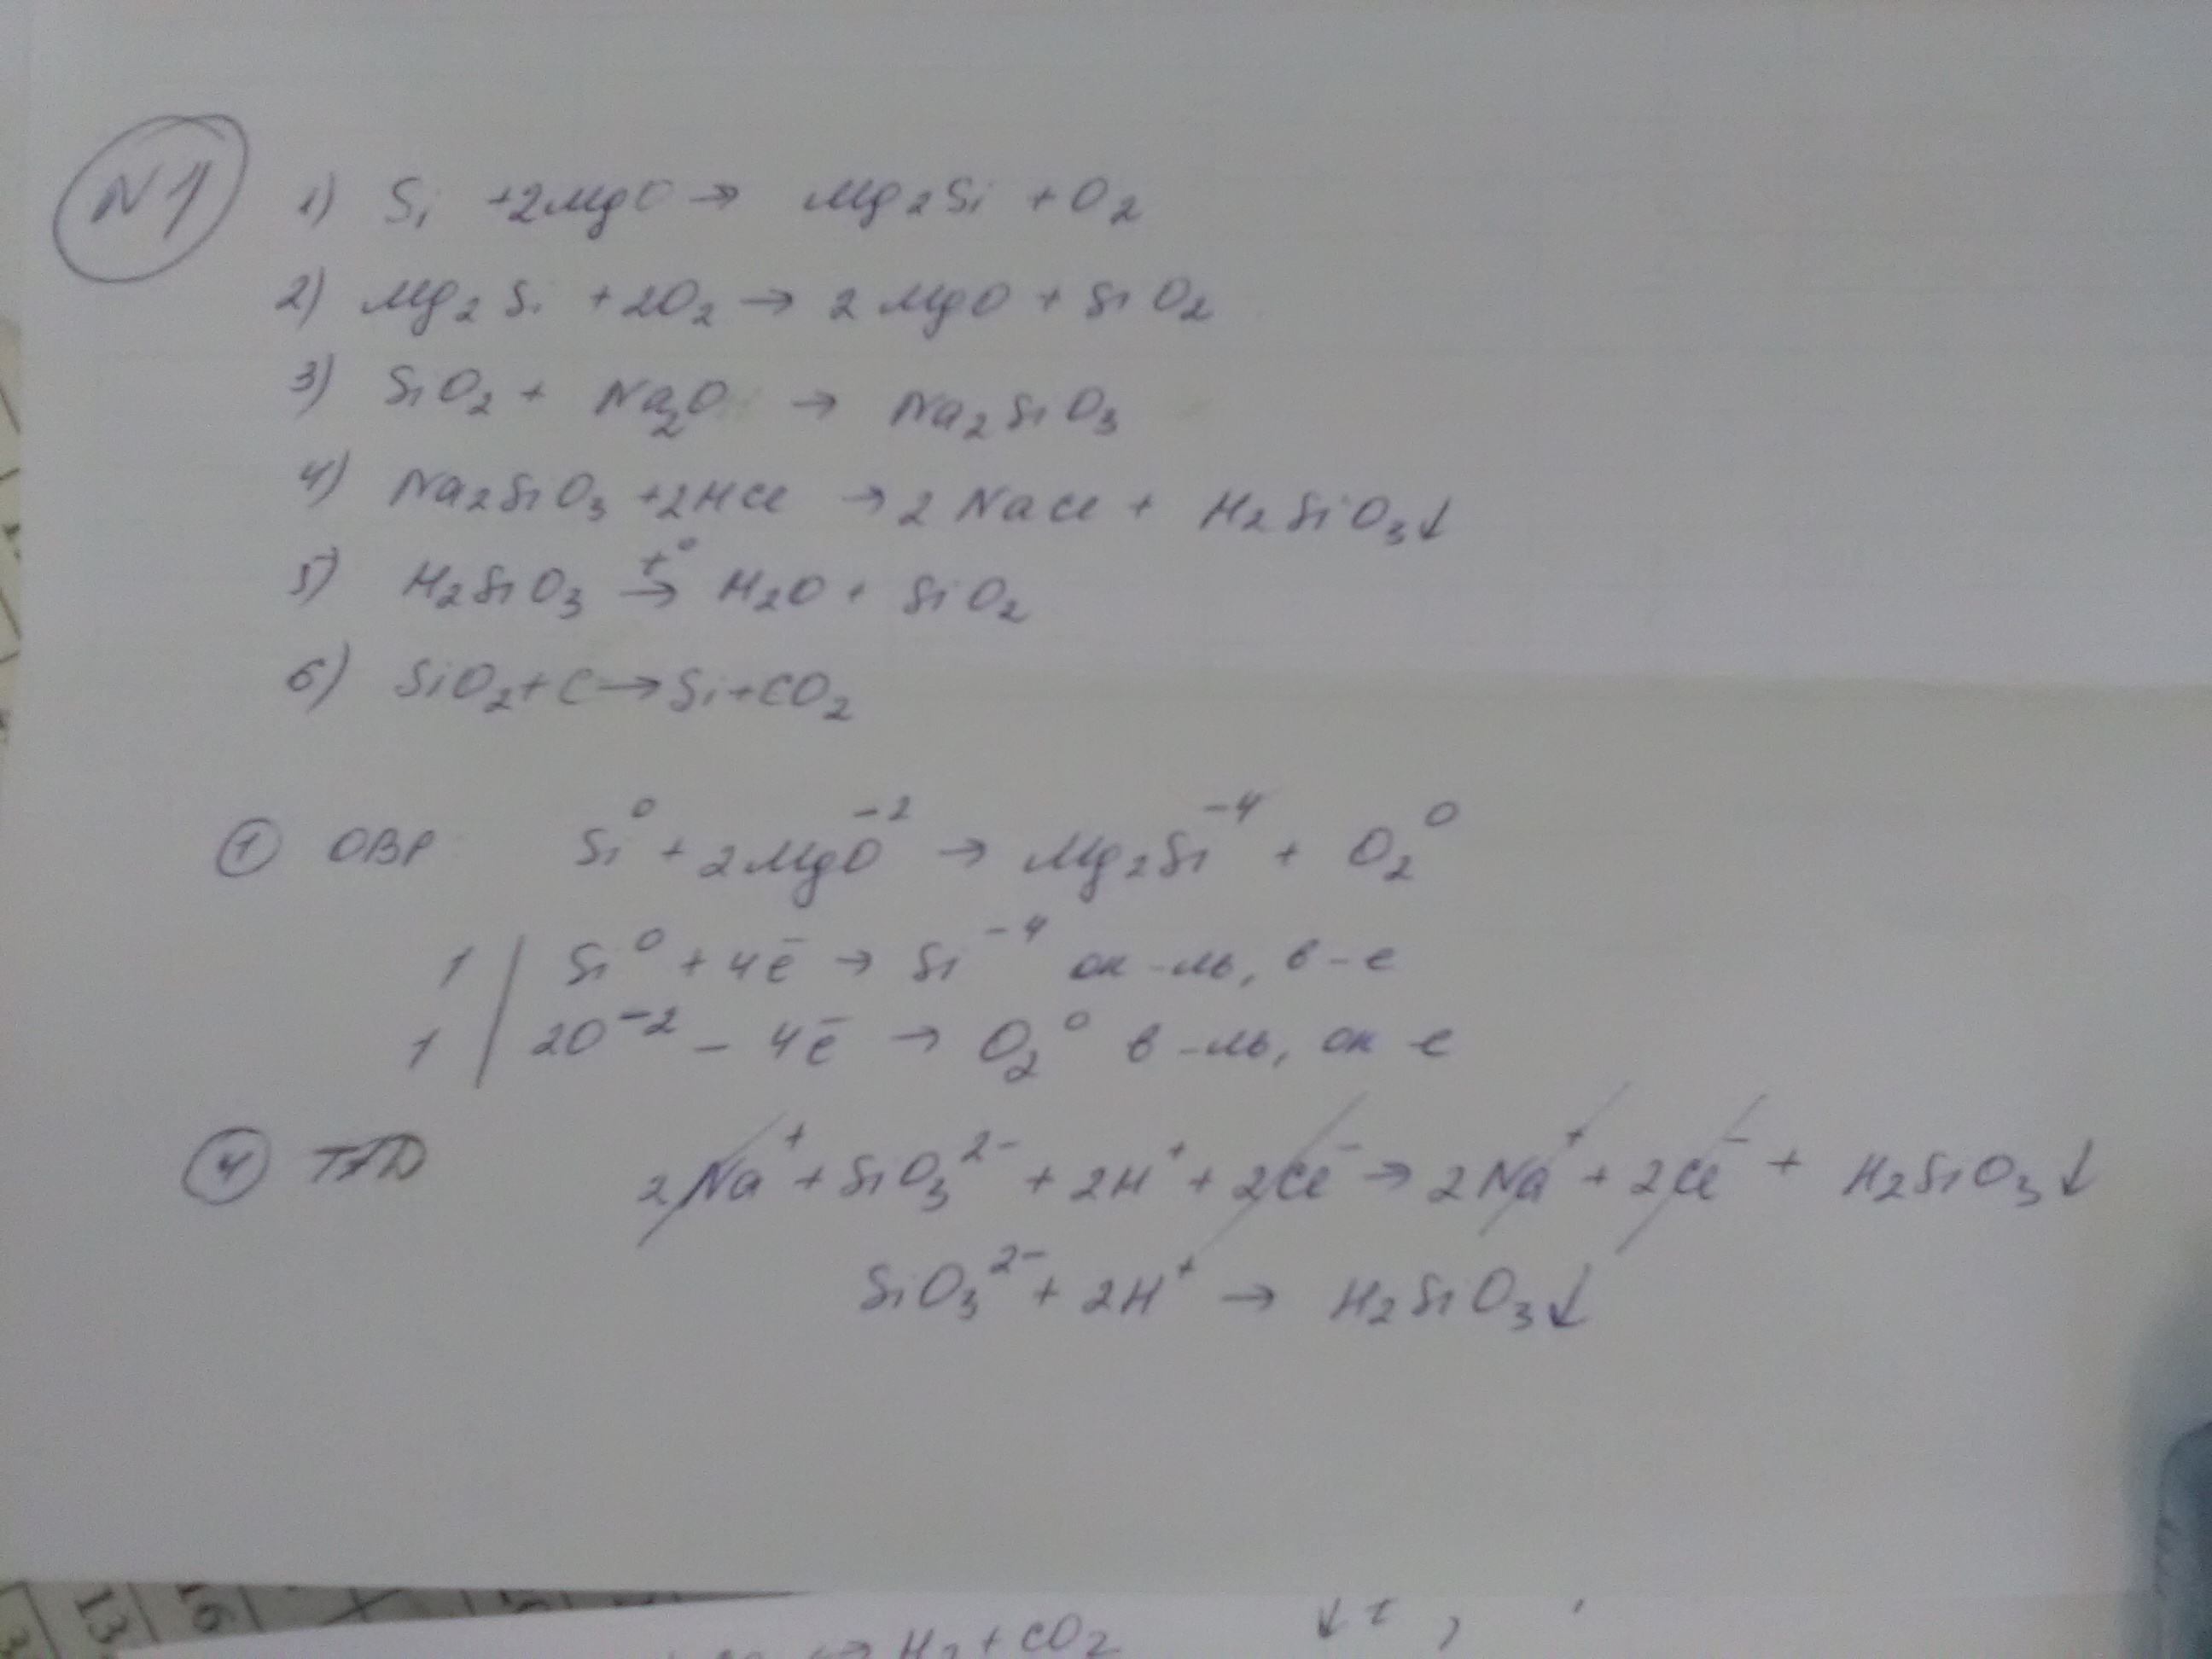 N1
1) Si +2MgO → Mg2Si + O2
2) Mg2Si + 2O2 → 2MgO + SiO2
3) SiO2 + Na2O → Na2SiO3
4) Na2SiO3 +2HCl → 2NaCl + H2SiO3↓
5) H2SiO3 t°→ H2O + SiO2
6) SiO2+C→Si+CO2
1 ОВР Si⁰ + 2MgO⁻² → Mg2Si⁻⁴ + O2⁰
1 | Si⁰ + 4ē → Si⁻⁴ ок-ль, в-е
1 | 2O⁻² - 4ē → O2⁰ в-ль, ок-е
4 ТЭД 2Na⁺ + SiO3²⁻ + 2H⁺ + 2Cl⁻ → 2Na⁺ + 2Cl⁻ + H2SiO3↓
SiO3²⁻ + 2H⁺ → H2SiO3↓
13 16
→ H2 + CO2